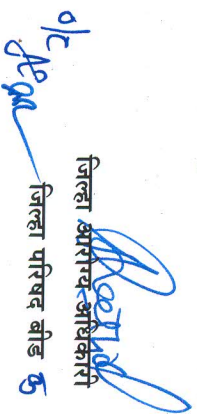 जिल्हा आरोग्य अधिकारी
जिल्हा परिषद बीड
o/c